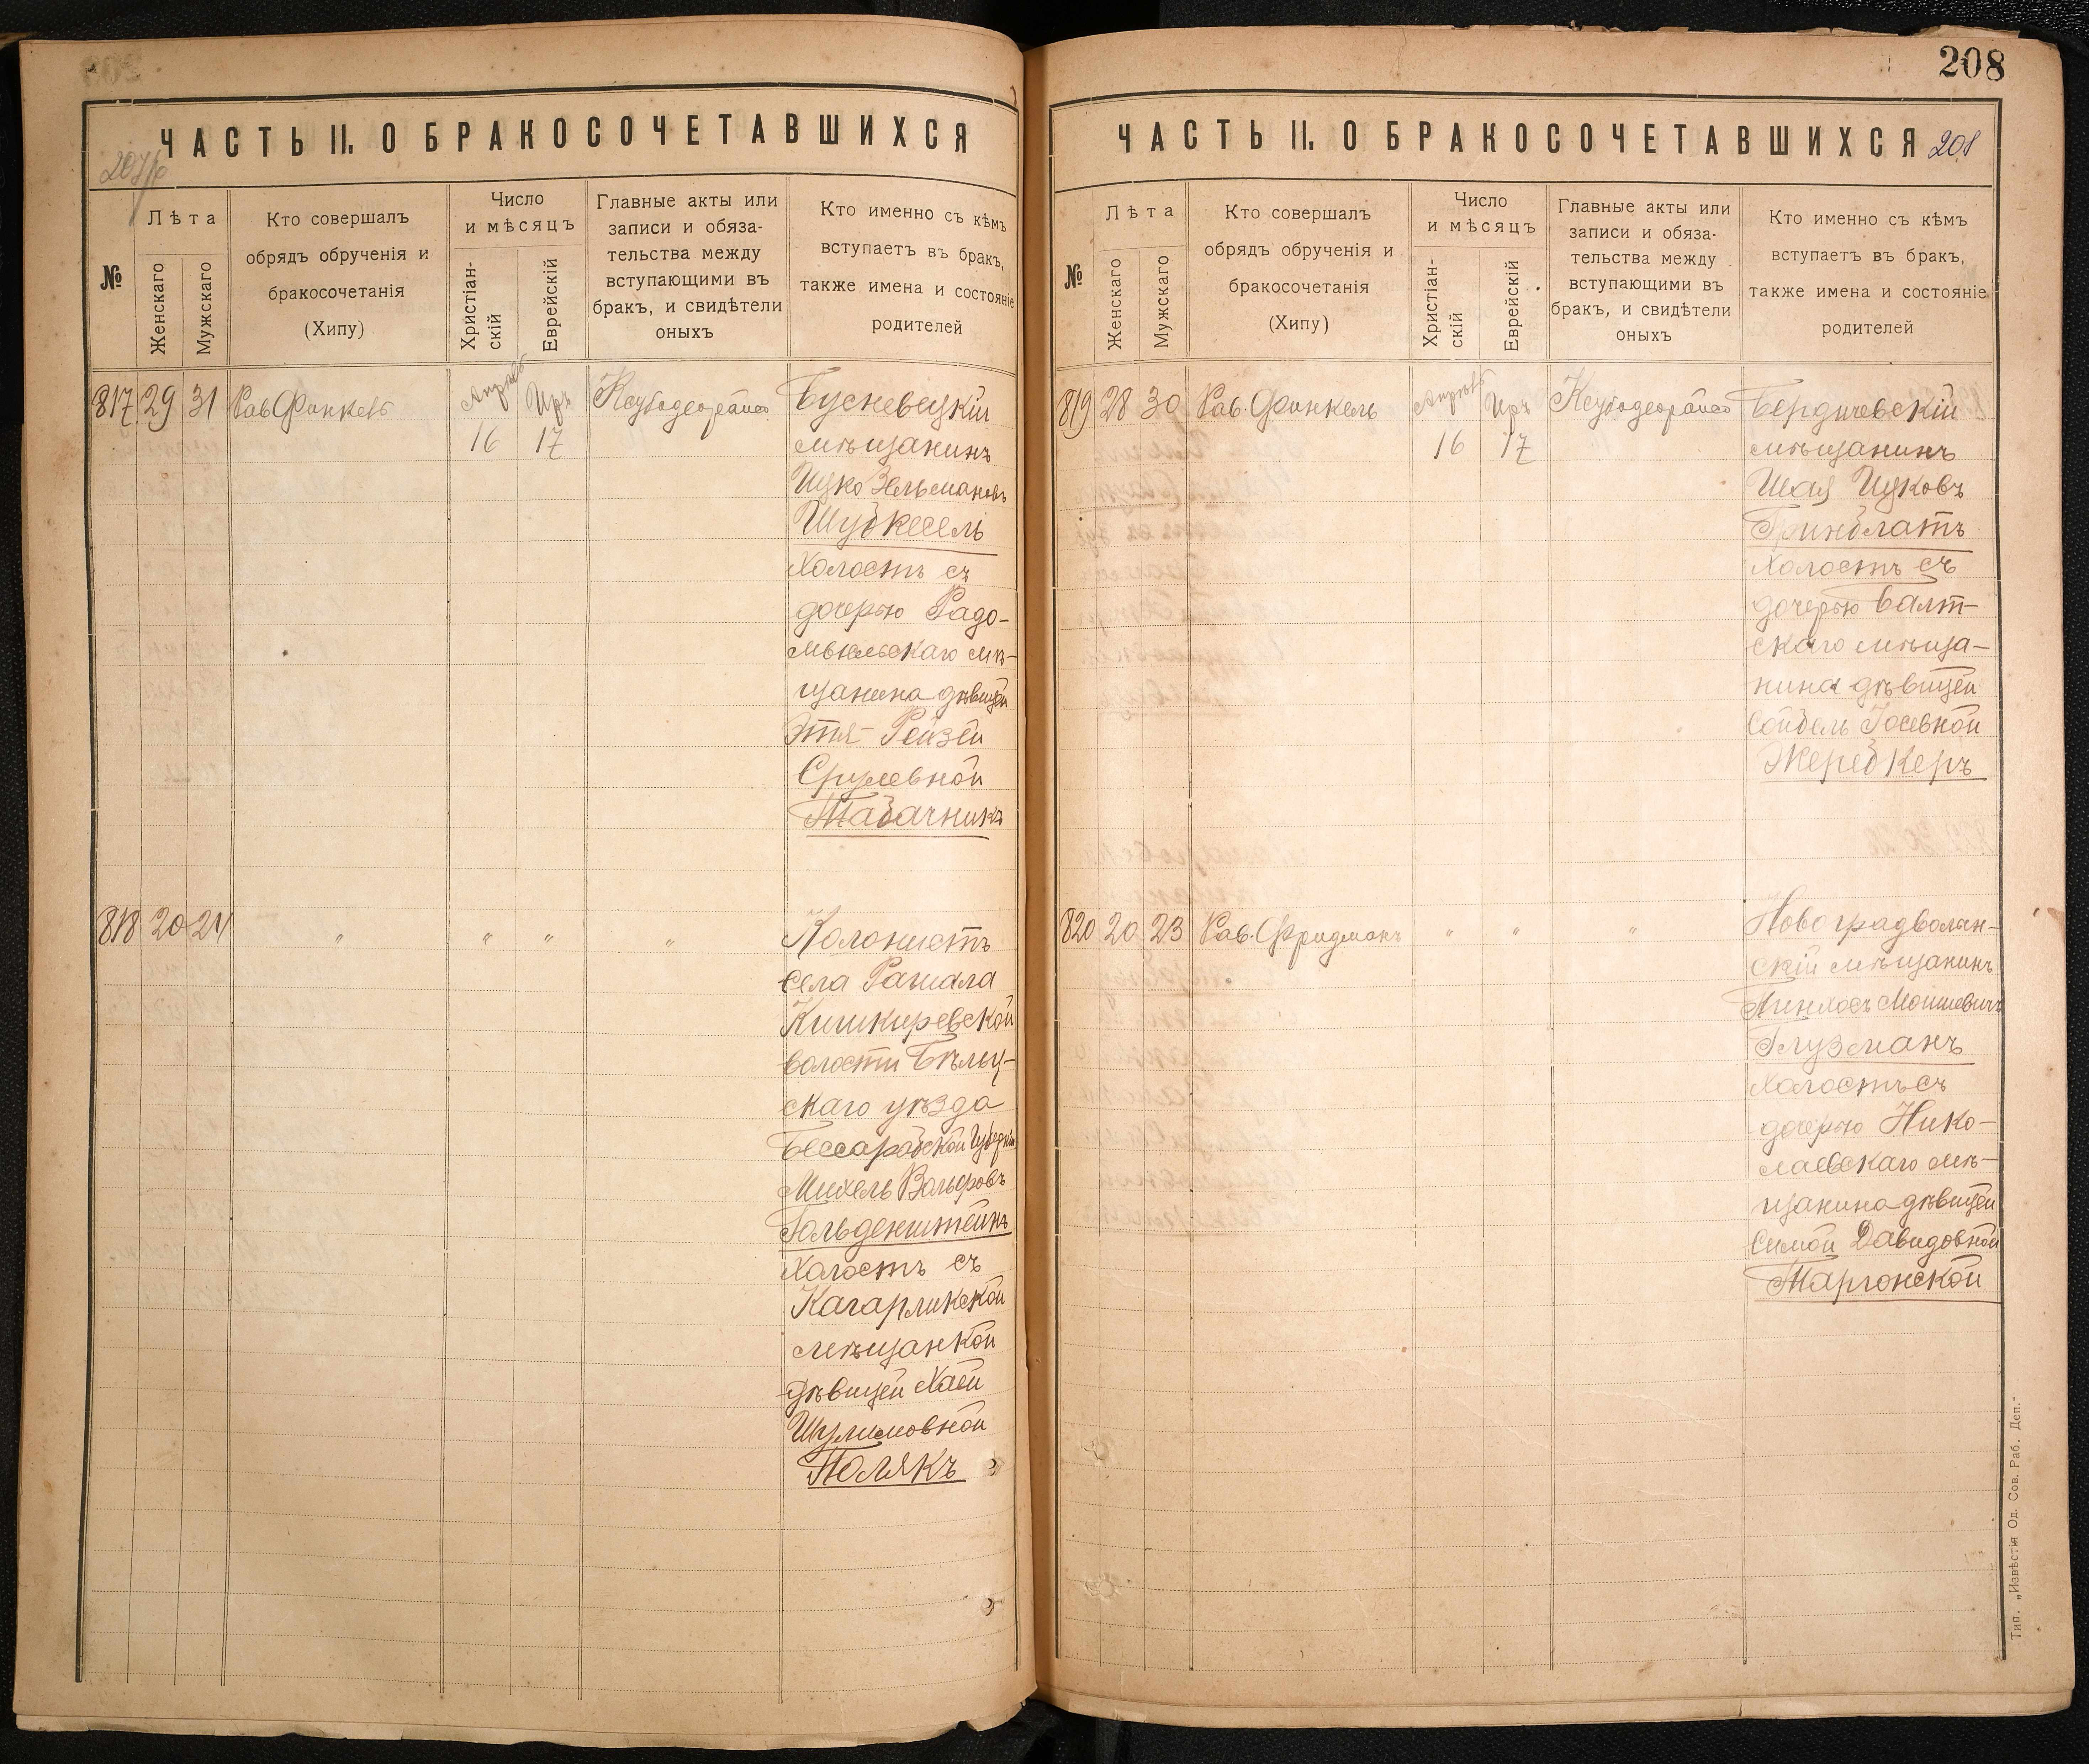 208
ЧАСТЬ II. О БРАКОСОЧЕТАВШИХСЯ
№
Лѣта
Женскаго
Мужскаго
Кто совершалъ
обрядъ обрученія и
бракосочетанія
(Хипу)
Число
и мѣсяцъ
Христіан-
скій
Еврейскій
Главные акты или
записи и обяза-
тельства между
вступающими въ
бракъ, и свидѣтели
оныхъ
Кто именно съ кѣмъ
вступаетъ въ бракъ,
также имена и состояніе
родителей
817 29 31 Рав. Финкель
Апрель Иръ
16 17
Бусневецкій
мѣщанинъ
Ицко Зельмановъ
Шубкесель
холостъ съ
дочерью Радо-
мысльскаго мѣ-
щанина дѣвицей
Этя-Рейзей
Срулевной
Табачникъ
818 20 24 " " " "
Колонистъ
села Рашала
Кишкиревской
волости Бѣльц-
скаго уѣзда
Бессарабской Губерніи
Михель Вольфовъ
Гольденштейнъ
холостъ съ
Кагарликской
мѣщанкой
дѣвицей Хаей
Шулимовной
Полякъ
ЧАСТЬ II. О БРАКОСОЧЕТАВШИХСЯ 208
№
Лѣта
Женскаго
Мужскаго
Кто совершалъ
обрядъ обрученія и
бракосочетанія
(Хипу)
Число
и мѣсяцъ
Христіан-
скій
Еврейскій
Главные акты или
записи и обяза-
тельства между
вступающими въ
бракъ, и свидѣтели
оныхъ
Кто именно съ кѣмъ
вступаетъ въ бракъ,
также имена и состояніе
родителей
819 28 30 Рав. Финкель
Апрель Иръ
16 17
Бердичевскій
мѣщанинъ
Шая Ицковъ
Гринблатъ
холостъ съ
дочерью Балт-
скаго мѣща-
нина дѣвицей
Сойбель Іосевной
Жеребкеръ
820 20 23 Рав. Фридманъ " " "
Новоградволын-
скій мѣщанинъ
Пинхосъ Мошкевичъ
Глузманъ
холостъ съ
дочерью Нико-
лаевскаго мѣ-
щанина дѣвицей
Симой Давидовной
Таргонской
Тип. „Извѣстія Од. Сов. Раб. Деп."